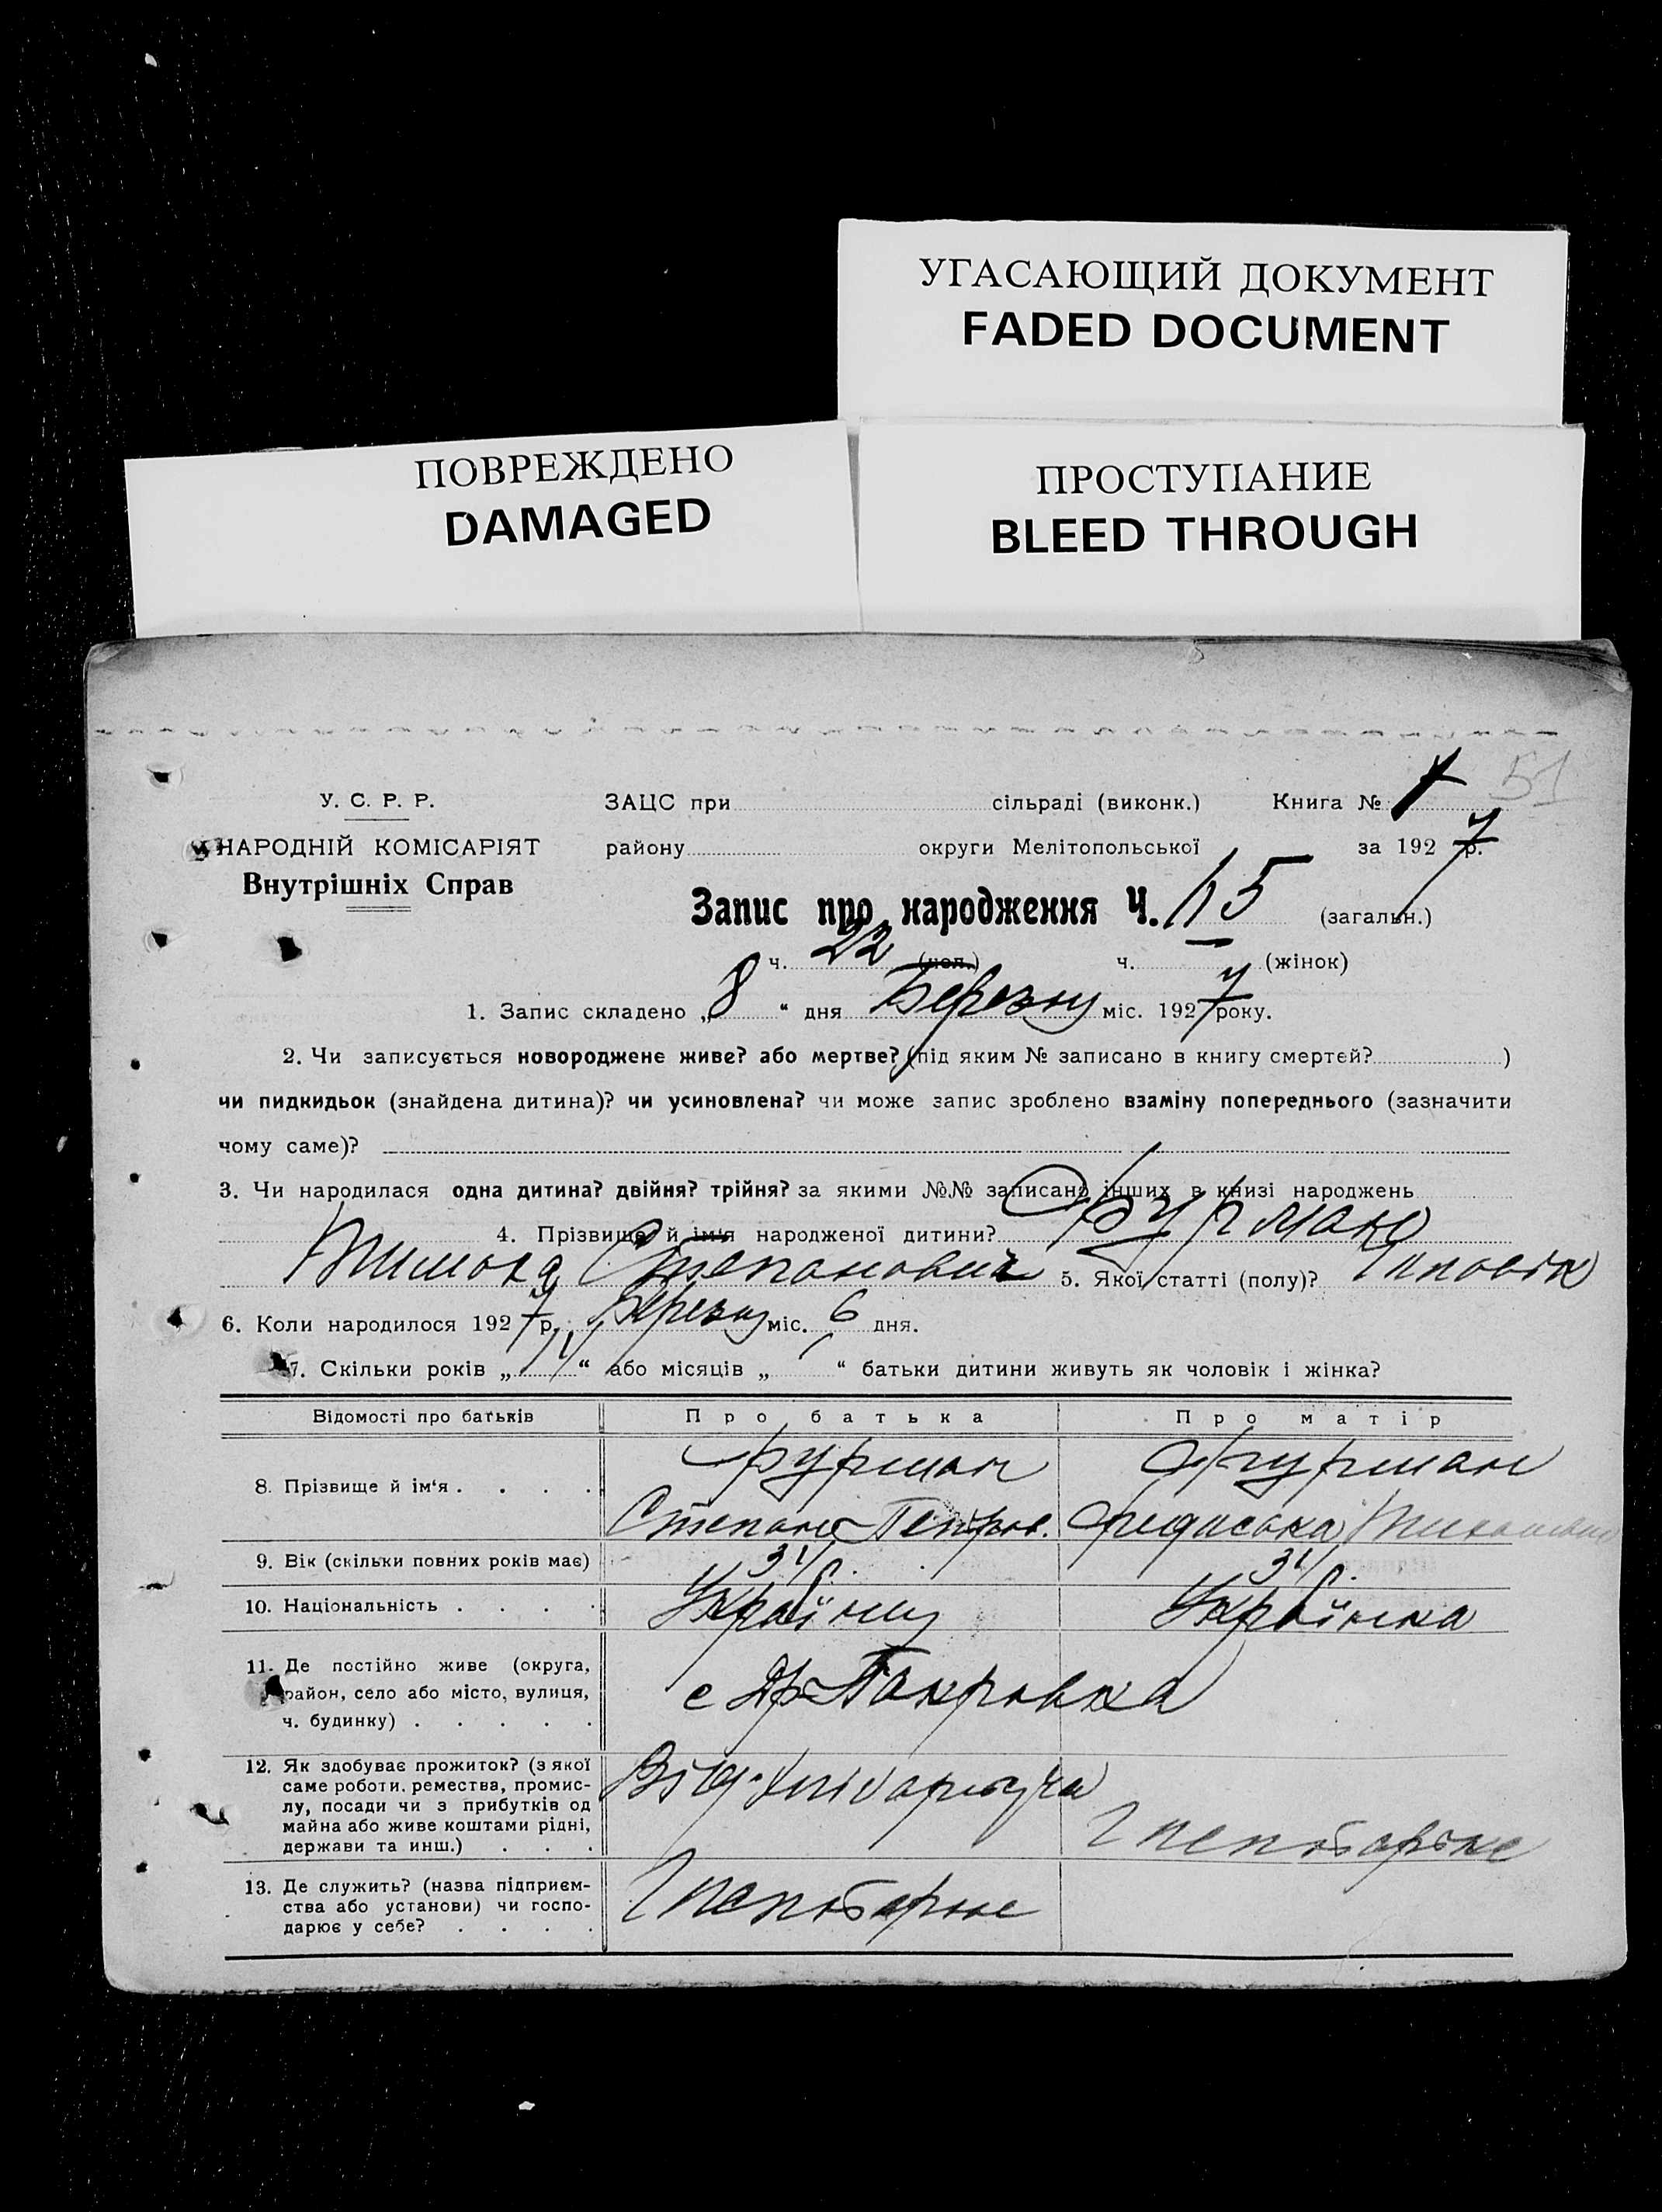 УГАСАЮЩИЙ ДОКУМЕНТ
FADED DOCUMENT
ПОВРЕЖДЕНО
DAMAGED
ПРОСТУПАНИЕ
BLEED THROUGH
51
У. С. Р. Р.
НАРОДНІЙ КОМІСАРІЯТ
Внутрішніх Справ
ЗАЦС при сільраді (виконк.) Книга №
району округи Мелітопольської за 1927 р.
Запис про народження Ч. 15 (загальн.)
ч. 22 (чол.) ч. — (жінок)
1. Запис складено „ 8 “ дня Березну міс. 1927 року.
2. Чи записується новороджене живе? або мертве? (під яким № записано в книгу смертей? )
чи пидкидьок (знайдена дитина)? чи усиновлена? чи може запис зроблено взаміну попереднього (зазначити
чому саме)?
3. Чи народилася одна дитина? двійня? трійня? за якими №№ записано інших в книзі народжень
4. Прізвище й ім'я народженої дитини? Фурман
Степанович 5. Якої статті (полу)? Чиловік
6. Коли народилося 1927 р. Березну міс. 6 дня.
7. Скільки років „ 11 “ або місяців „ “ батьки дитини живуть як чоловік і жінка?
Відомості про батьків Про батька Про матір
8. Прізвище й ім'я . . . . Фурман Фурман
Степан Петров.
9. Вік (скільки повних років має) 31 р. 31 р.
10. Національність . . . . Українец Українка
11. Де постійно живе (округа,
район, село або місто, вулиця,
ч. будинку) . . . . .
с Покровка
12. Як здобуває прожиток? (з якої
саме роботи, ремества, промис-
лу, посади чи з прибутків од
майна або живе коштами рідні,
держави та инш.) . . .
Від
13. Де служить? (назва підприєм-
ства або установи) чи госпо-
дарює у себе? . . . .